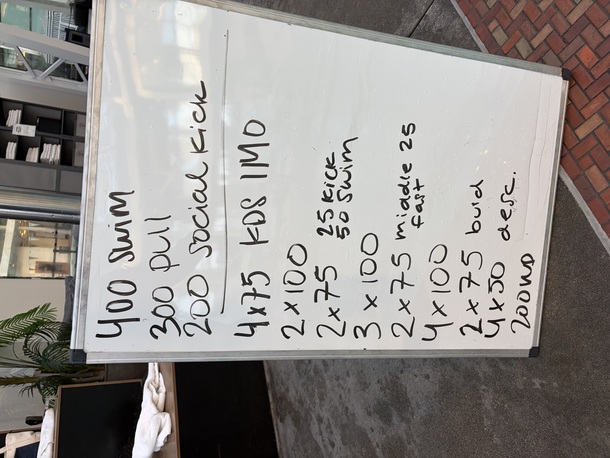 400 swim
300 pull
200 social kick
4x75 KDS IMO
2x100
2x75 25 kick
50 swim
3x100
2x75 middle 25
fast
4x100
2x75 buid
4x50 desc.
200WD